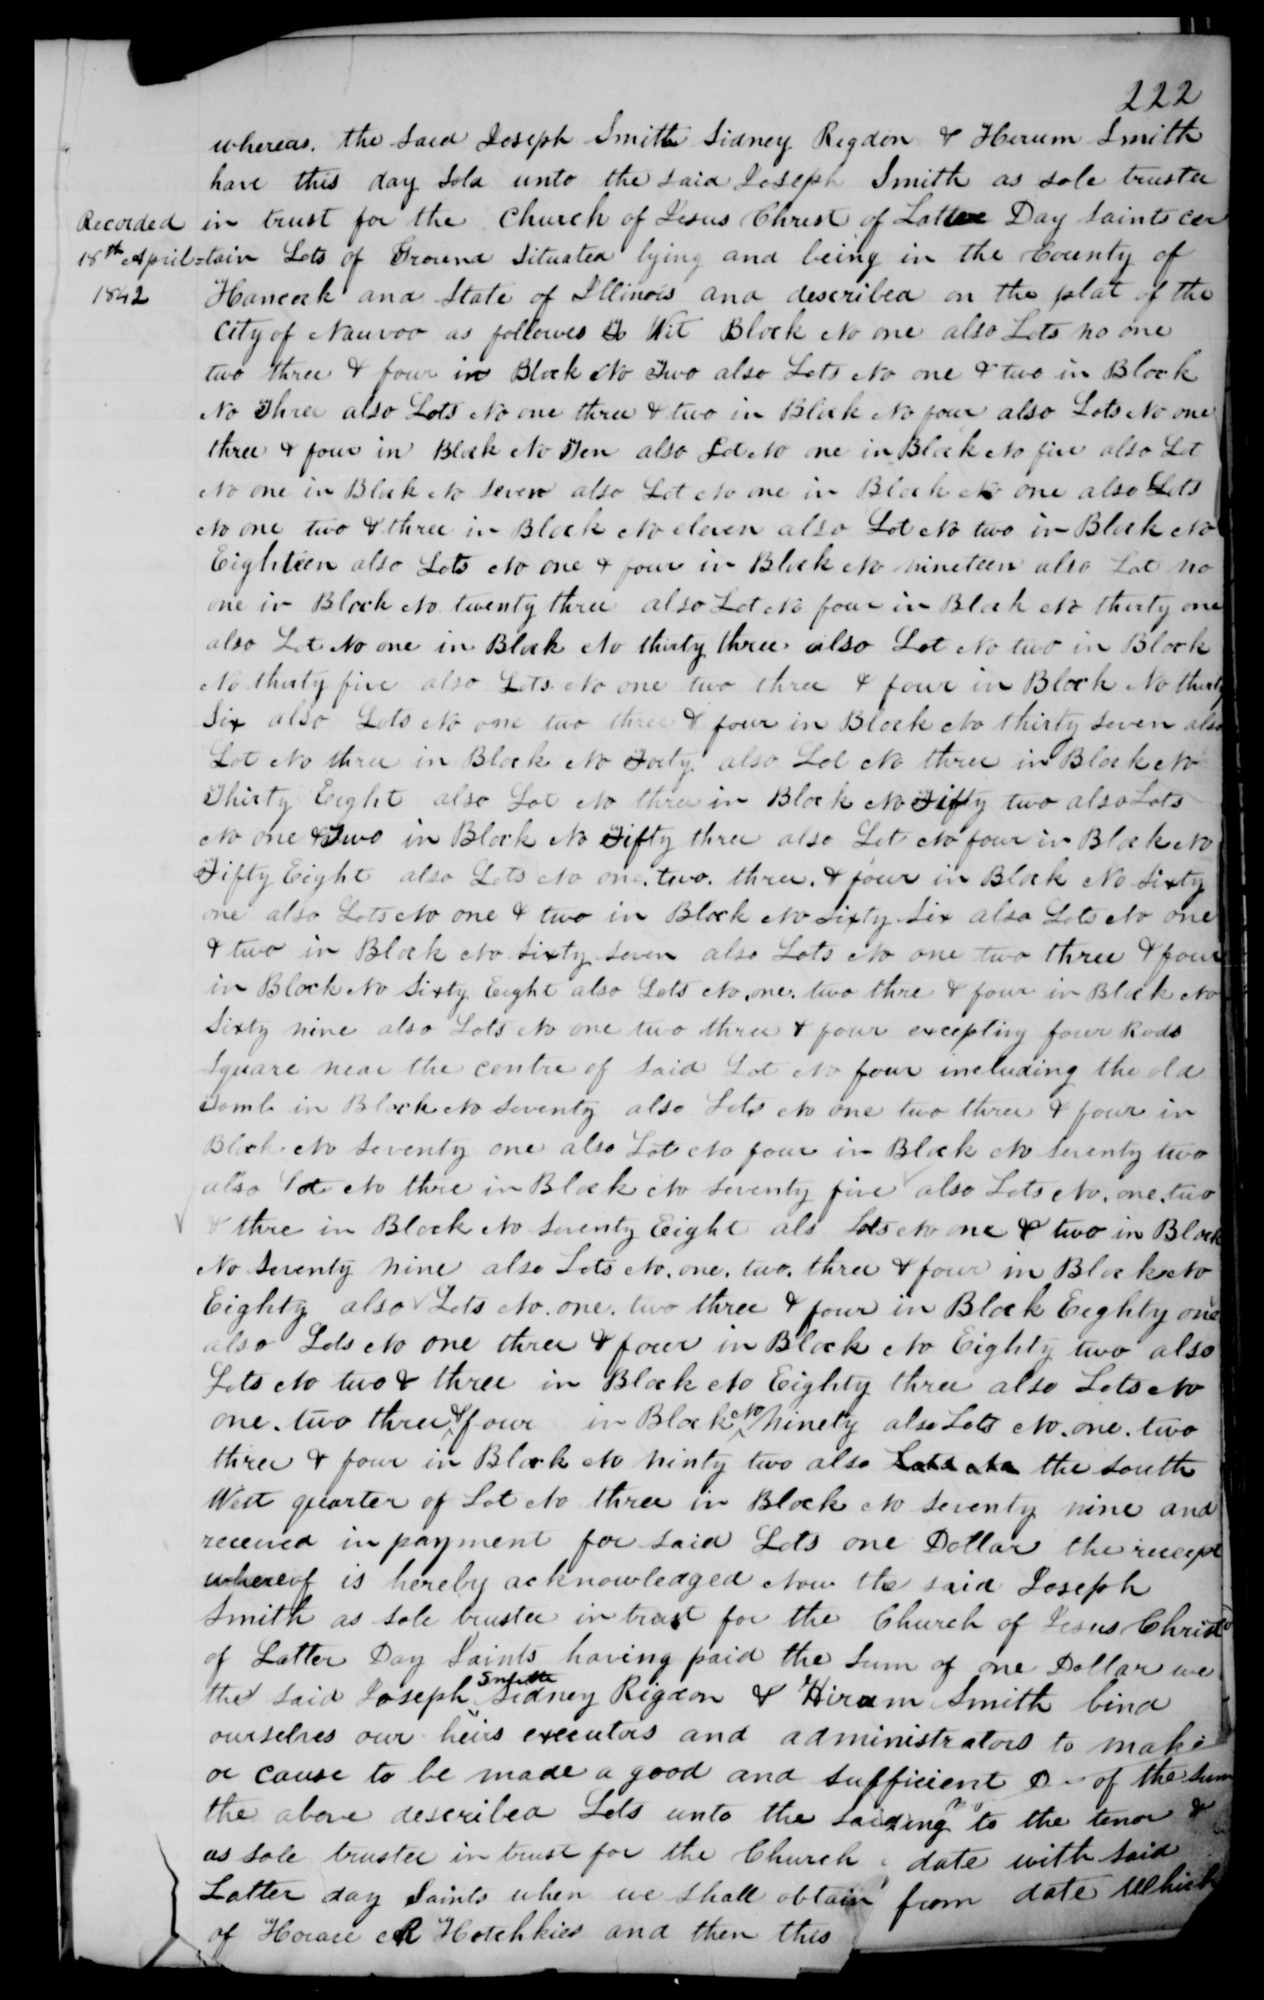 222
whereas. the Said Joseph Smith Sidney Rigdon & Hirum Smith
have this day Sold unto the said Joseph Smith as sole trustee
Recorded 18th April 1842
in trust for the Church of Jesus Christ of Latter Day Saints cer
-tain Lots of Ground Situated lying and being in the County of
Hancock and State of Illinois and described on the plat of the
City of Nauvoo as followes To Wit Block No one also Lots no one
two three & four in Block No Two also Lots No one & two in Block
No Three also Lots No one three & two in Block No four also Lots No one
three & four in Block No Ten also Lot No one in Block No five also Lot
No one in Block No Seven also Lot No one in Block No one also Lots
No one two & three in Block No eleven also Lot No two in Block No
Eighteen also Lots No one & four in Block No nineteen also Lot no
one in Block No. twenty three also Lot No four in Block No thirty one
also Lot No one in Block No thirty three also Lot No two in Block
No thirty five also Lots No one two three & four in Block No thirty
Six also Lots No one two three & four in Block No thirty Seven also
Lot No three in Block No Forty also Lot No three in Block No
Thirty Eight also Lot No three in Block No Fifty two also Lots
No one & Two in Block No Fifty three also Lot No four in Block No
Fifty Eight also Lots No one. two. three. & four in Block No Sixty
one also Lots No one & two in Block No Sixty Six also Lots No one
& two in Block No Sixty Seven also Lots No one two three & four
in Block No Sixty Eight also Lots No. one. two thre & four in Block No
Sixty nine also Lots No one two three & four excepting four Rods
Square near the centre of Said Lot No four including the old
Tomb in Block No Seventy also Lots No one two three & four in
Block No Seventy one also Lot No four in Block No Seventy two
also Lot No thre in Block No Seventy five also Lots No. one. two
& thre in Block No Seventy Eight als Lots No one & two in Block
No Seventy nine also Lots No. one. two. three & four in Block No
Eighty also Lots No. one. two three & four in Block Eeghty one
also Lots No one three & four in Block No Eighty two also
Lots No two & three in Block No Eighty three also Lots No
one. two three & four in Block No Ninety also Lots No. one. two
three & four in Block No Ninty two also Lots No the South
West quarter of Lot No three in Block No Seventy nine and
received in payment for said Lots one Dollar the receipt
whereof is hereby acknowledged Now the said Joseph
Smith as sole trustee in trust for the Church of Jesus Christ
of Latter Day Saints having paid the Sum of one Dollar we
the said Joseph Smith Sidney Rigdon & Hiram Smith bind
ourselves our heirs executors and administrators to make
or cause to be made a good and sufficient D of the Sum
the above described Lots unto the said ing to the tenor &
as sole trustee in trust for the Church date with said
Latter day Saints when we shall obtain from date Which
of Horace R Hotchkies and then this